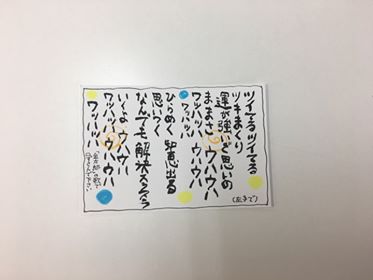 ツイてるツイてる
ツキまくり
運が強いゾ思いの
ままさ ウハウハ
ワッハッハ ウハウハ
ワッハッハ
ひらめく 知恵出る
思いつく
なんでも 解決スラスラ
いくよ ウハウハ
ワッハッハ ウハウハ
ワッハッハ